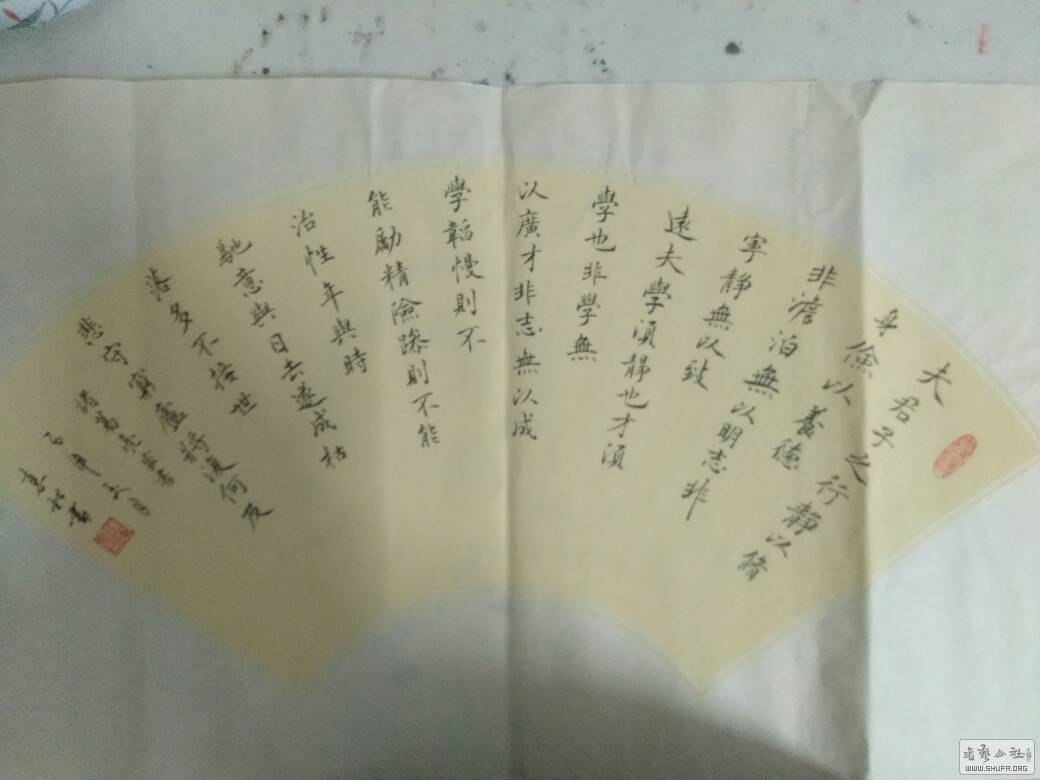 夫君子之行靜以脩
身儉以養德
非澹泊無以明志非
寧靜無以致
遠夫學須靜也才須
學也非學無
以廣才非志無以成
學韜慢則不
能勵精險躁則不能
治性年與時
馳意與日去遂成枯
落多不接世
悲守窮廬將復何及
諸葛亮
書
WWW.SHUFA.ORG